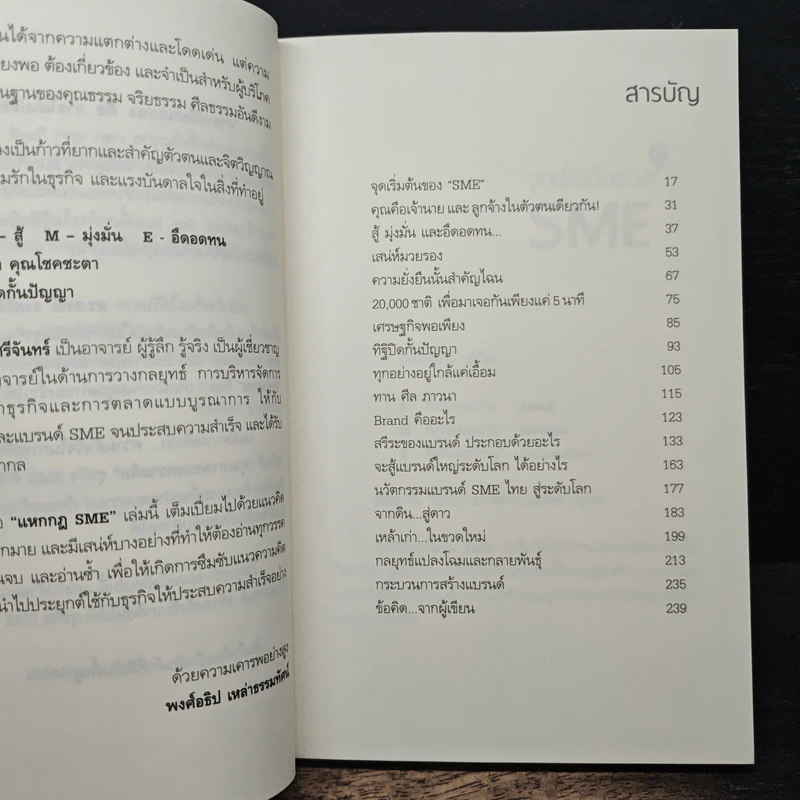 นได้จากความแตกต่างและโดดเด่น แต่ความ
ยงพอ ต้องเกี่ยวข้อง และจำเป็นสำหรับผู้บริโภค
นฐานของคุณธรรม จริยธรรม ศีลธรรมอันดีงาม
งเป็นก้าวที่ยากและสำคัญตัวตนและจิตวิญญาณ
มรักในธุรกิจ และแรงบันดาลใจในสิ่งที่ทำอยู่
– สู้ M – มุ่งมั่น E - อึดอดทน
คุณโชคชะตา
ดกั้นปัญญา
ศรีจันทร์ เป็นอาจารย์ ผู้รู้ลึก รู้จริง เป็นผู้เชี่ยวชาญ
จารย์ในด้านการวางกลยุทธ์ การบริหารจัดการ
าธุรกิจและการตลาดแบบบูรณาการ ให้กับ
ละแบรนด์ SME จนประสบความสำเร็จ และได้รับ
ากล
อ “แหกกฎ SME” เล่มนี้ เต็มเปี่ยมไปด้วยแนวคิด
กมาย และมีเสน่ห์บางอย่างที่ทำให้ต้องอ่านทุกวรรค
นจบ และอ่านซ้ำ เพื่อให้เกิดการซึมซับแนวความคิด
นำไปประยุกต์ใช้กับธุรกิจให้ประสบความสำเร็จอย่าง
ด้วยความเคารพอย่างสูง
พงศ์อธิป เหล่าธรรมทัศน์
สารบัญ
จุดเริ่มต้นของ “SME” 17
คุณคือเจ้านาย และ ลูกจ้างในตัวตนเดียวกัน! 31
สู้ มุ่งมั่น และอึดอดทน... 37
เสน่ห์มวยรอง 53
ความยั่งยืนนั้นสำคัญไฉน 67
20,000 ชาติ เพื่อมาเจอกันเพียงแค่ 5 นาที 75
เศรษฐกิจพอเพียง 85
ทิฐิปิดกั้นปัญญา 93
ทุกอย่างอยู่ใกล้แค่เอื้อม 105
ทาน ศีล ภาวนา 115
Brand คืออะไร 123
สรีระของแบรนด์ ประกอบด้วยอะไร 133
จะสู้แบรนด์ใหญ่ระดับโลก ได้อย่างไร 163
นวัตกรรมแบรนด์ SME ไทย สู่ระดับโลก 177
จากดิน...สู่ดาว 183
เหล้าเก่า...ในขวดใหม่ 199
กลยุทธ์แปลงโฉมและกลายพันธุ์ 213
กระบวนการสร้างแบรนด์ 235
ข้อคิด...จากผู้เขียน 239